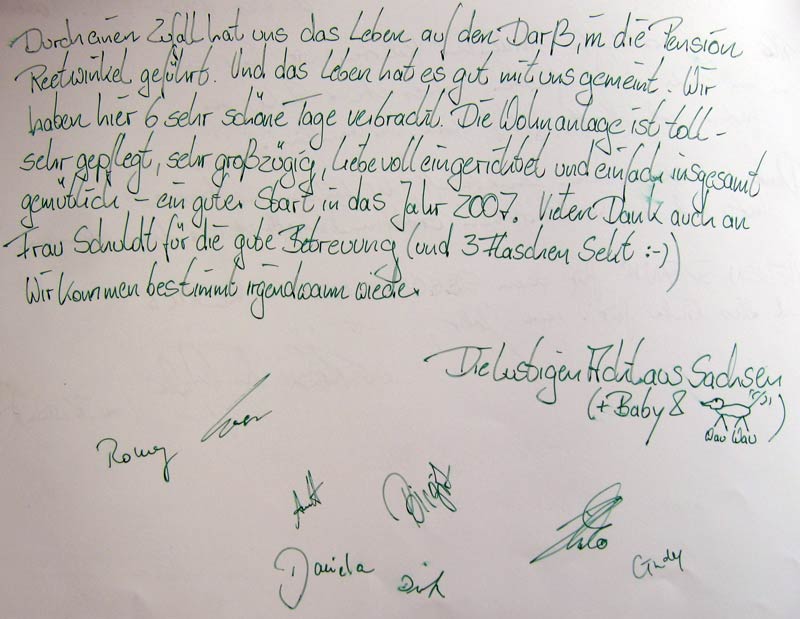 Durch einen Zufall hat uns das Leben auf den Darß, in die Pension
Reetwinkel geführt. Und das Leben hat es gut mit uns gemeint. Wir
haben hier 6 sehr schöne Tage verbracht. Die Wohnanlage ist toll -
sehr gepflegt, sehr großzügig, liebevoll eingerichtet und einfach insgesamt
gemütlich – ein guter Start in das Jahr 2007. Vielen Dank auch an
Frau Schuldt für die gute Betreuung (und 3 Flaschen Sekt :-))
Wir kommen bestimmt irgendwann wieder.
Die lustigen Acht aus Sachsen
(+ Baby & )
Wau Wau
Romy
Birgit
Daniela Dirk
Cindy